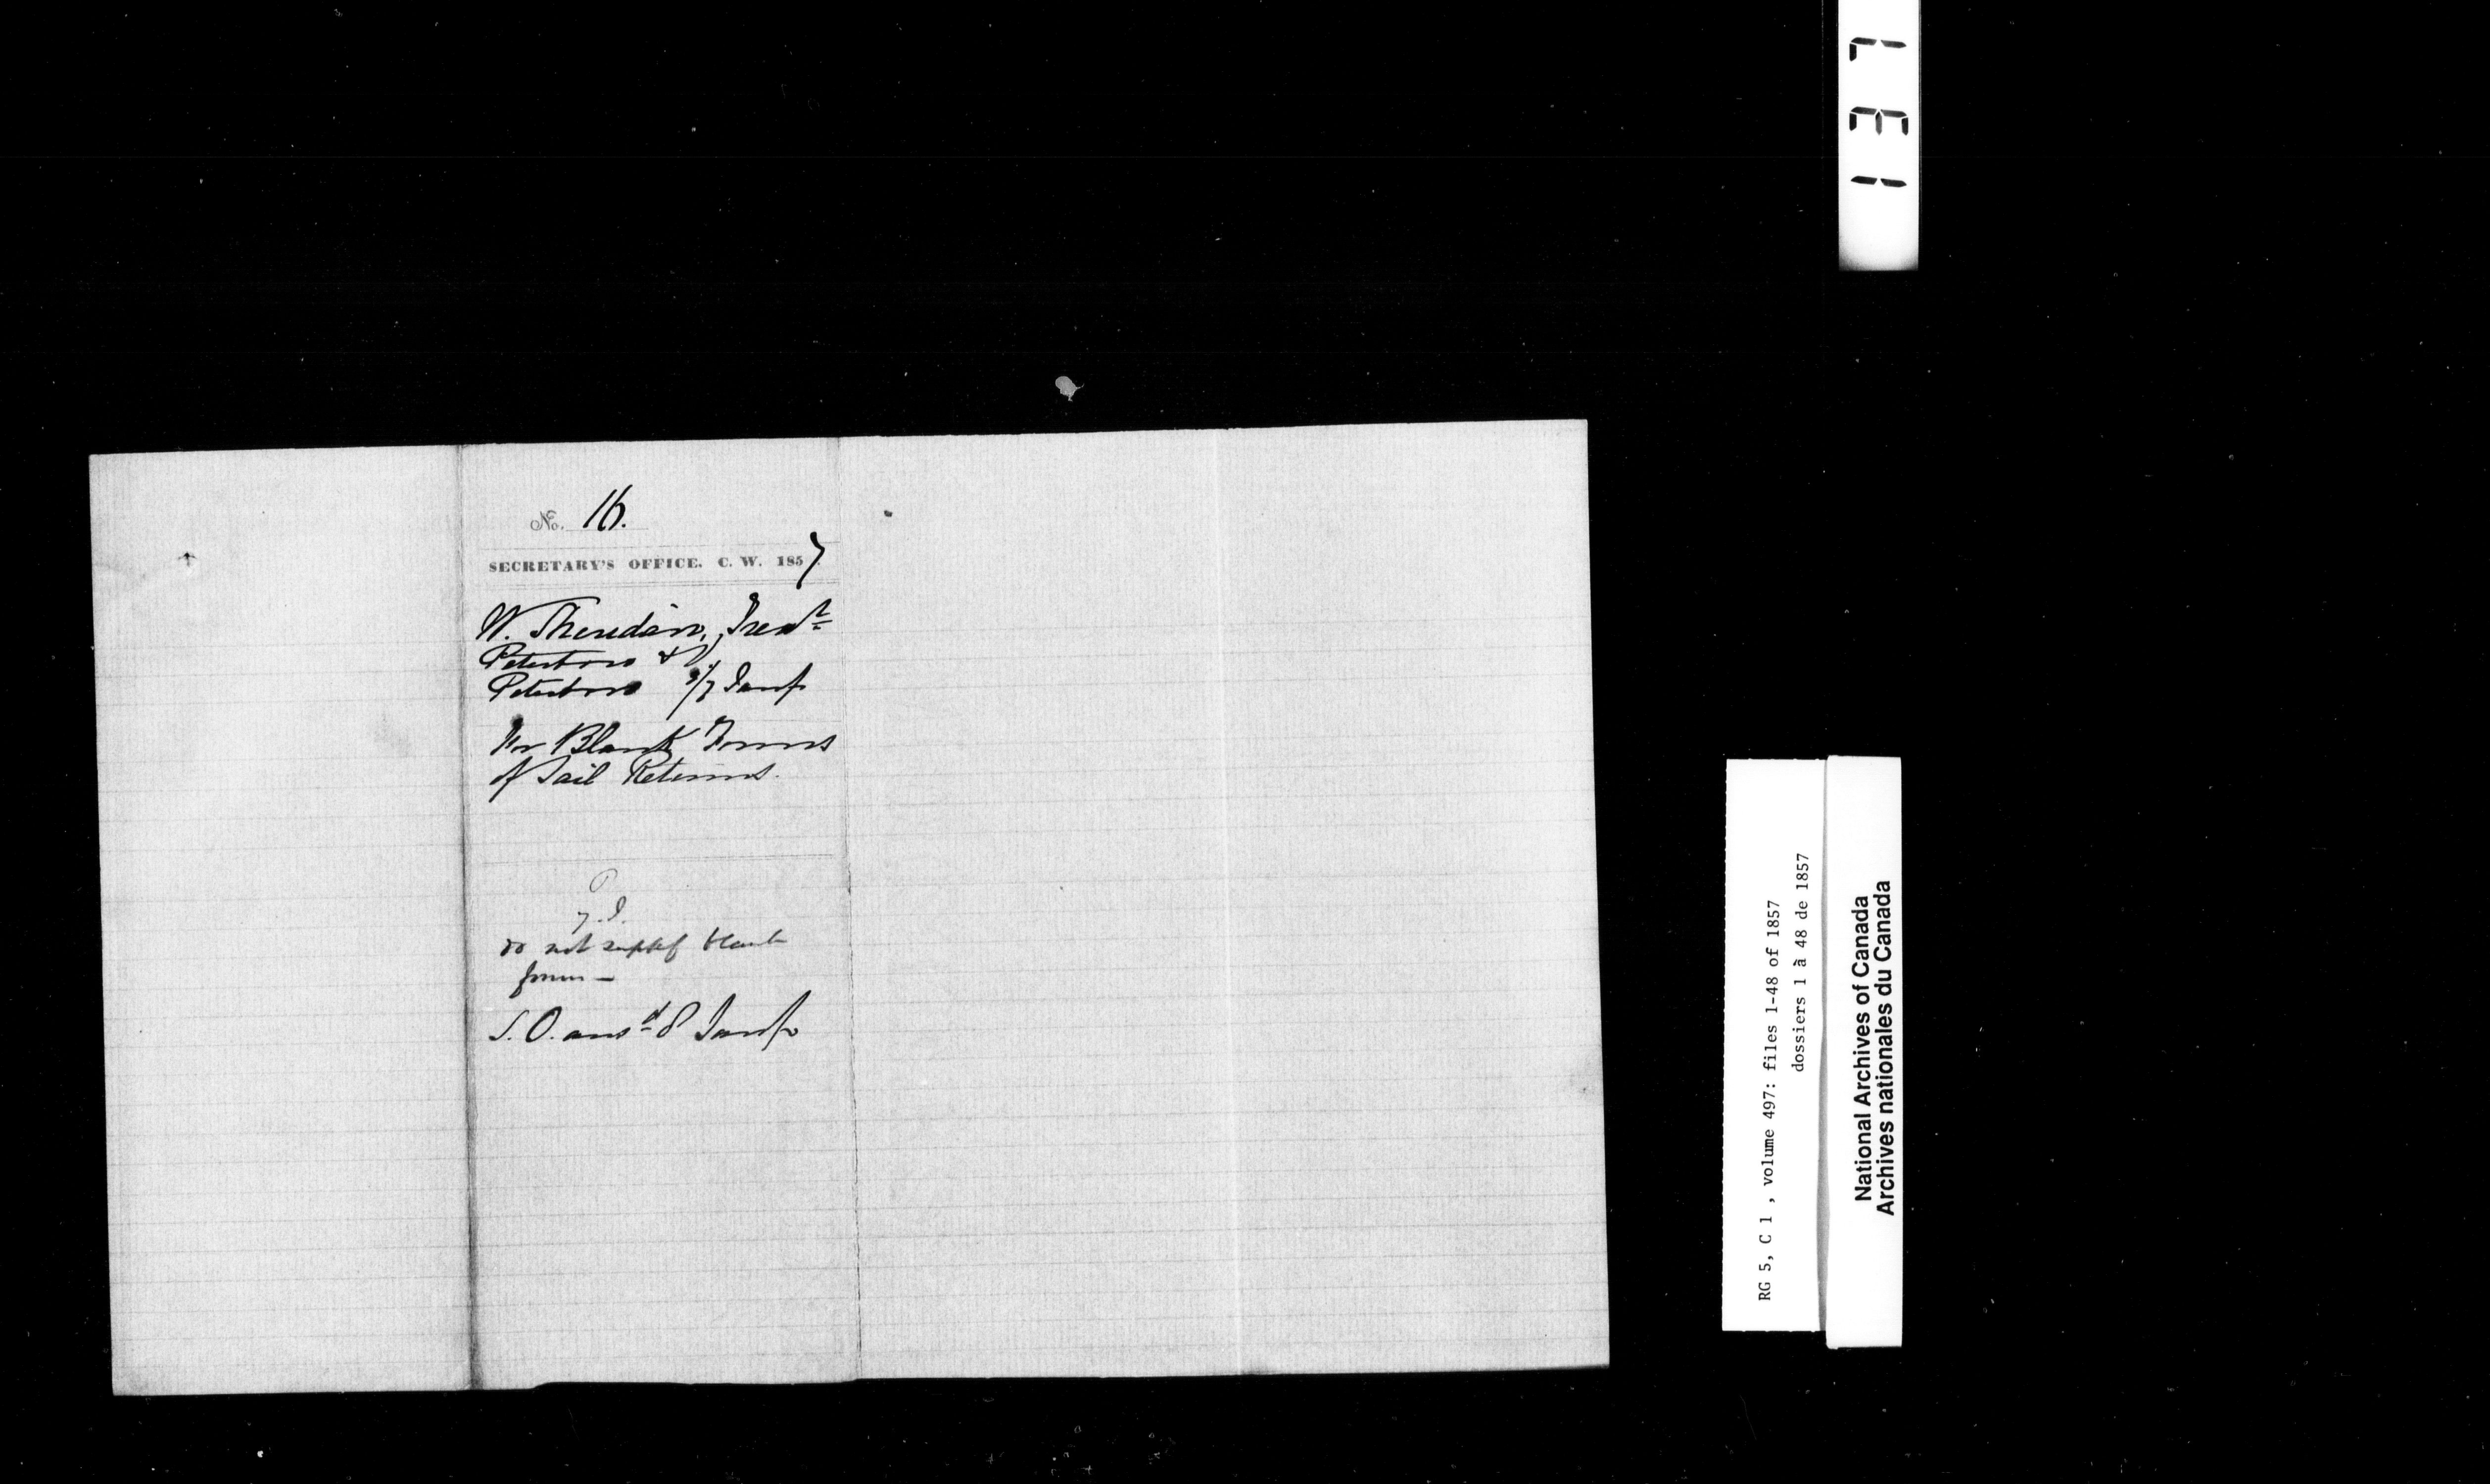 137
No. 16.
SECRETARY'S OFFICE. C. W. 1857
W. Sheridan, Treas^r
Peterboro & V.
Peterboro 3/7 Jany
For Blank Forms
of Jail Returns.
do not supply blank
forms —
S. O. ans^d 8 Jany
RG 5, C 1 , volume 497: files 1-48 of 1857
dossiers 1 à 48 de 1857
National Archives of Canada
Archives nationales du Canada